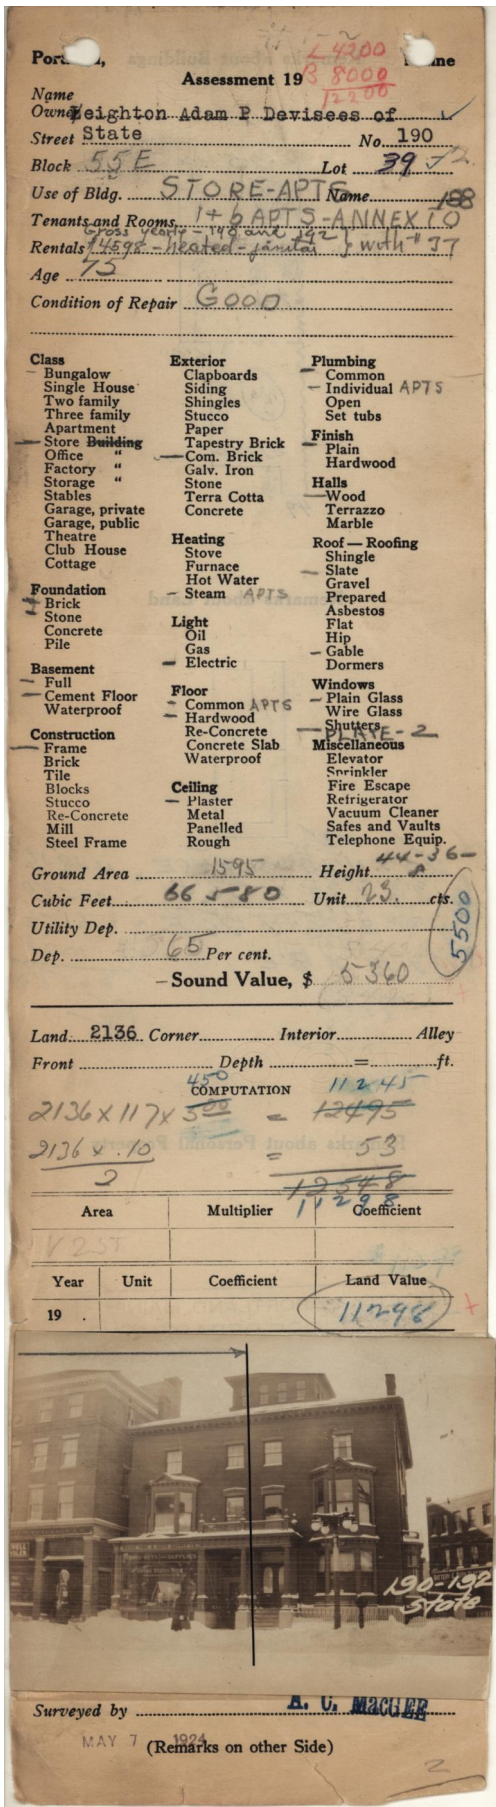 L 4200
B 8000
12200
Assessment 19
Name
Leighton Adam P Devisees of
Street State No. 190
Block 55E Lot 39
Use of Bldg. STORE-APTS Name 188
Tenants and Rooms 1+6 APTS-ANNEX 10
Gross yearly - 190 and 192 } with # 37
Rentals $4598 - heated - janitor
Age 75
Condition of Repair GOOD
Class
- Bungalow
Single House
Two family
Three family
Apartment
- Store Building
Office "
Factory "
Storage "
Stables
Garage, private
Garage, public
Theatre
Club House
Cottage
Foundation
- Brick
- Stone
Concrete
Pile
Basement
- Full
- Cement Floor
Waterproof
Construction
- Frame
Brick
Tile
Blocks
Stucco
Re-Concrete
Mill
Steel Frame
Exterior
Clapboards
Siding
Shingles
Stucco
Paper
Tapestry Brick
- Com. Brick
Galv. Iron
Stone
Terra Cotta
Concrete
Heating
Stove
Furnace
Hot Water
- Steam APTS
Light
Oil
Gas
- Electric
Floor
- Common APTS
- Hardwood
Re-Concrete
Concrete Slab
Waterproof
Ceiling
- Plaster
Metal
Panelled
Rough
Plumbing
- Common
- Individual APTS
Open
Set tubs
Finish
- Plain
Hardwood
Halls
- Wood
Terrazzo
Marble
Roof — Roofing
Shingle
- Slate
Gravel
Prepared
Asbestos
Flat
Hip
- Gable
Dormers
Windows
- Plain Glass
Wire Glass
Shutters
- PLATE - 2
Miscellaneous
Elevator
Sprinkler
Fire Escape
Refrigerator
Vacuum Cleaner
Safes and Vaults
Telephone Equip.
Ground Area 1595 Height 44-36-8
Cubic Feet 66580 Unit 23. cts.
Utility Dep.
5500
Dep. 65 Per cent.
- Sound Value, $ 5360
Land 2136 Corner Interior Alley
Front Depth = ft.
450 11245
COMPUTATION
2136 x 117 x 500 = 12495
2136 x .10 = 53
2
12548
11298
Area Multiplier Coefficient
Year Unit Coefficient Land Value
19 . 11298
190-192
State
Surveyed by A. C. MacGEE
MAY 7 1924
(Remarks on other Side)
2